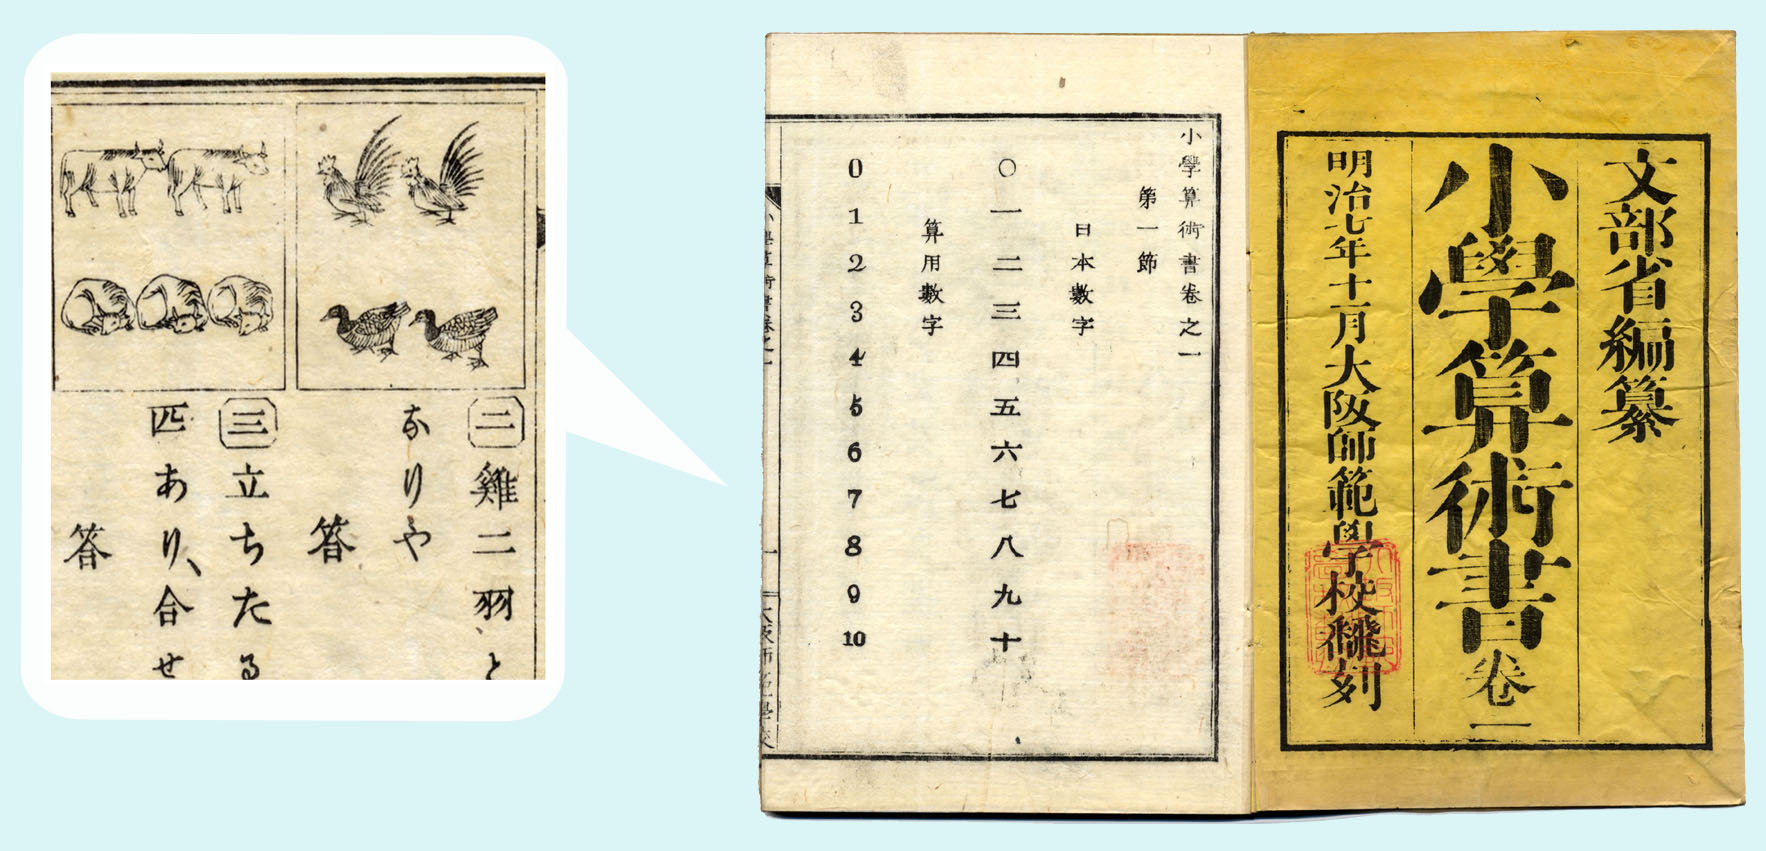 文部省編纂
小學算術書卷一
明治七年十一月大阪師範學校飜刻
小學算術書卷之一
第一節
日本數字
〇一二三四五六七八九十
算用數字
0 1 2 3 4 5 6 7 8 9 10
小學算術書卷之一 一 大阪師範學校
二 雞二羽と
なりや
答
三 立ちたる
匹あり、合せ
答